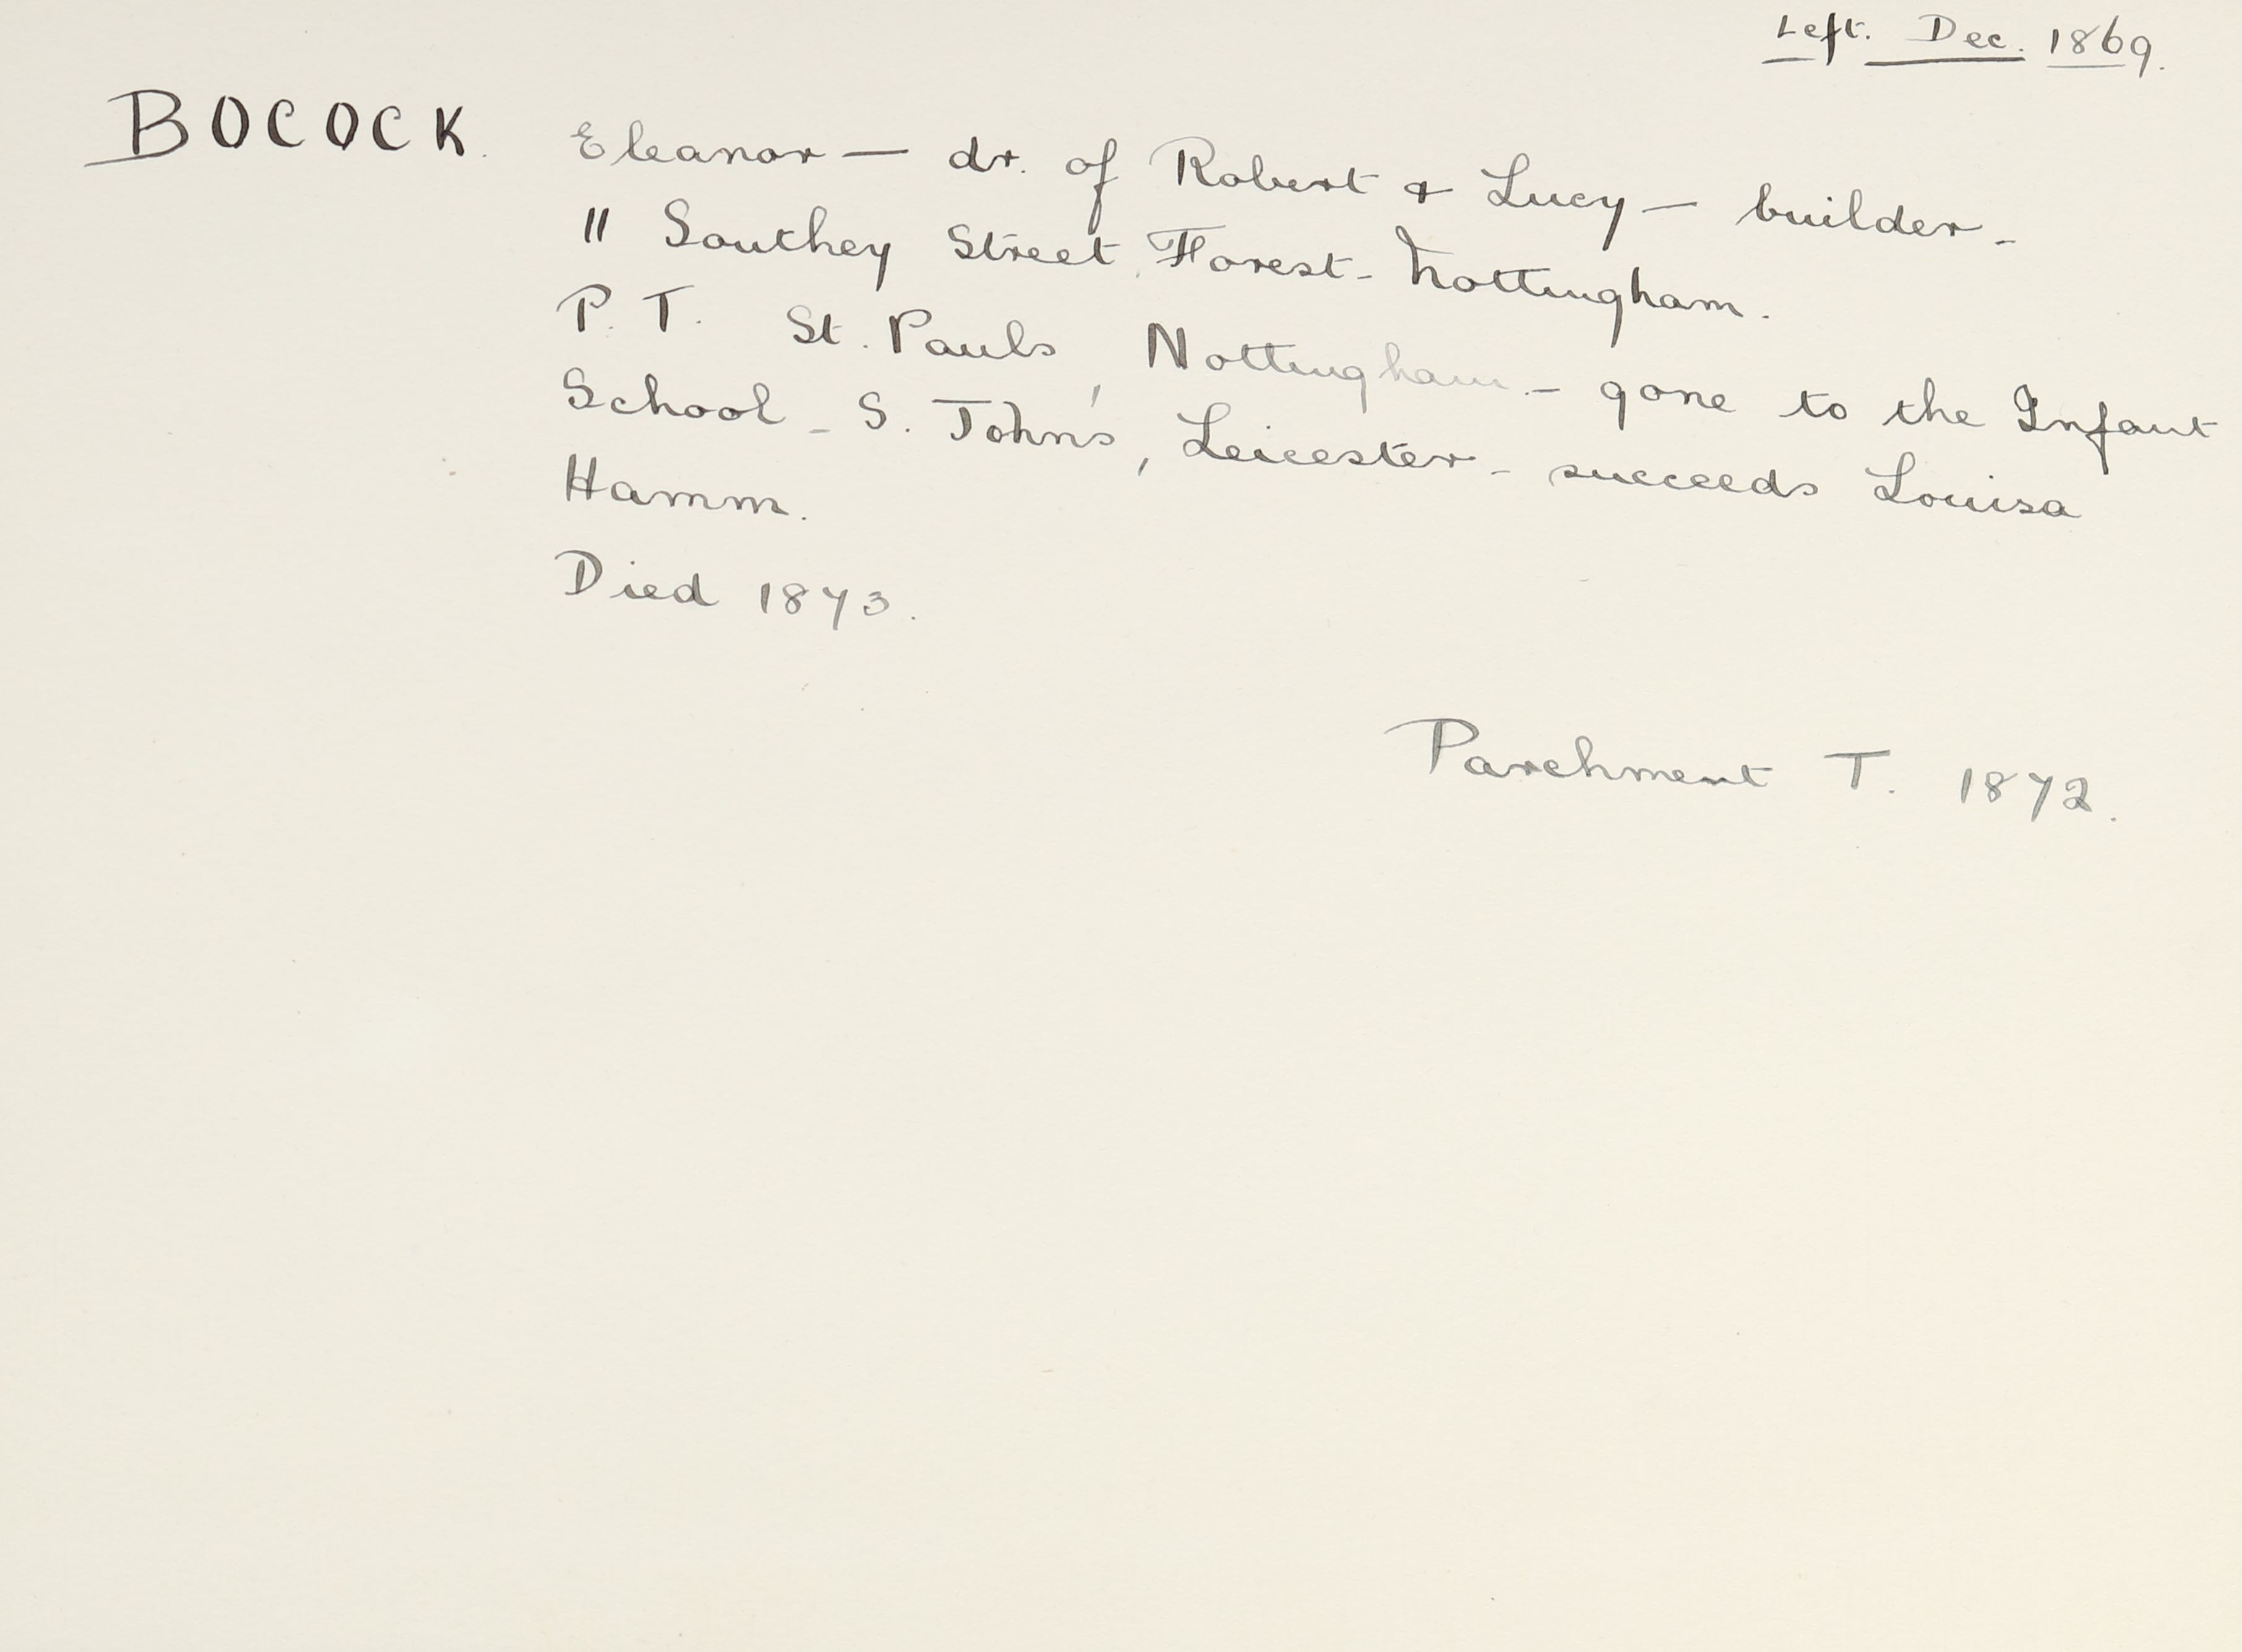 Left. Dec. 1869.
BOCOCK. Eleanor — dr. of Robert & Lucy — builder -
11 Southey Street, Forest - Nottingham.
P. T. St. Pauls, Nottingham - gone to the Infant
School - S. John's, Leicester - succeeds Louisa
Hamm.
Died 1873.
Parchment T. 1872.